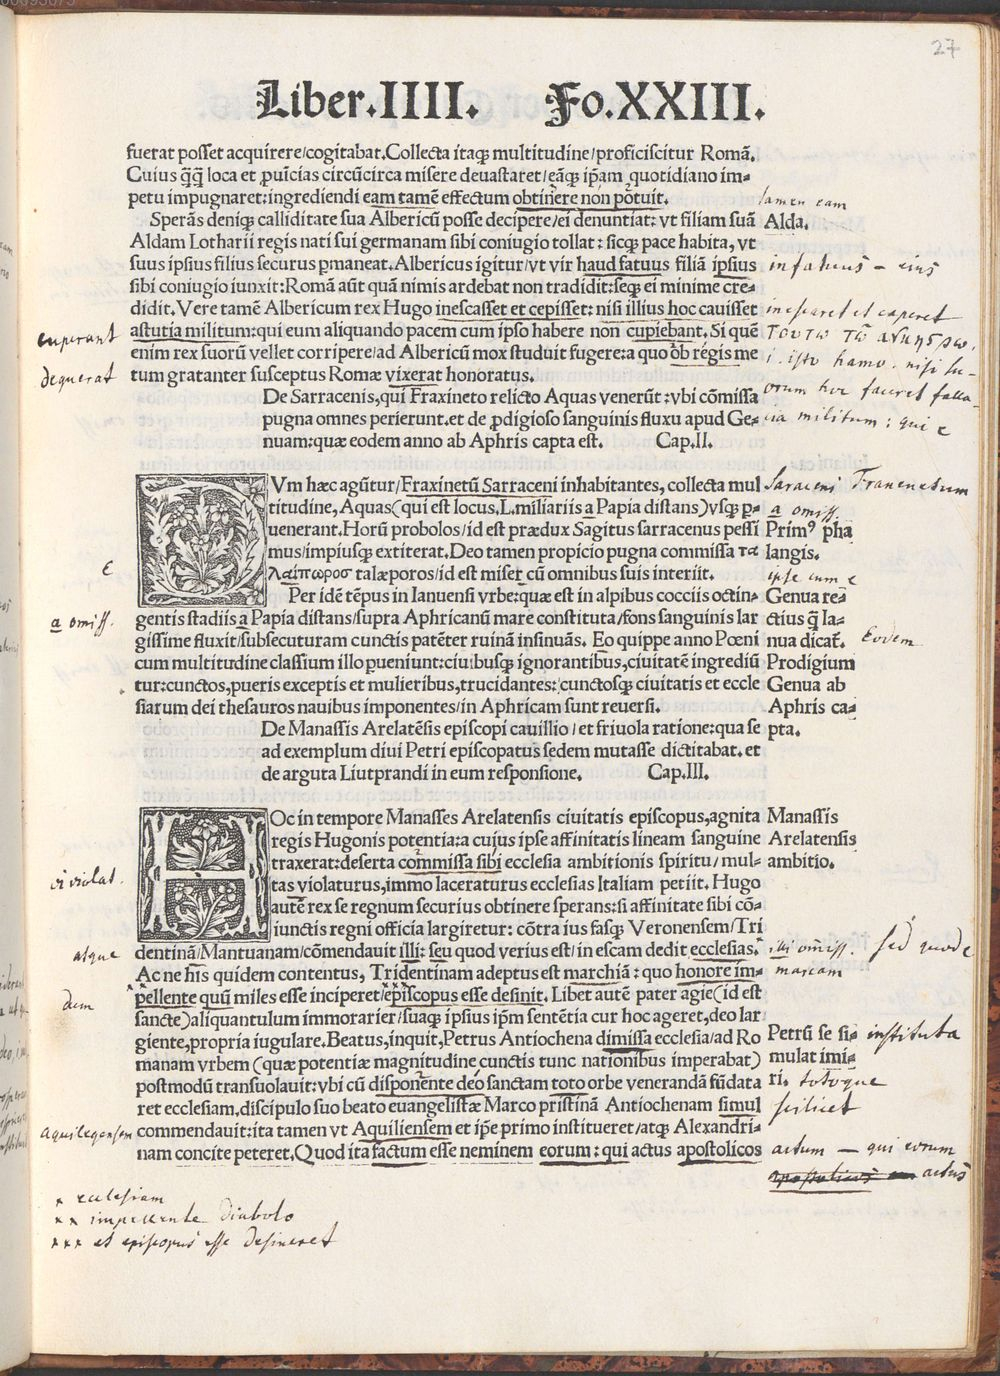 27
Liber.IIII. Fo.XXIII.
fuerat posset acquirere/cogitabat.Collecta itaqꝫ multitudine/proficiscitur Romã.
Cuius q̃q̃ loca et ꝓuĩcias circũcirca misere deuastaret/eãqꝫ ip̃am quotidiano im⸗
petu impugnaret:ingrediendi eam tamẽ effectum obtinere non põtuit.
Sperãs deniqꝫ calliditate sua Albericũ posse decipere/ei denuntiat: vt filiam suã
Aldam Lotharii regis nati sui germanam sibi coniugio tollat: sicqꝫ pace habita, vt
suus ipsius filius securus ꝑmaneat.Albericus igitur/vt vir haud fatuus filiã ipsius
sibi coniugio iunxit: Romã aũt quã nimis ardebat non tradidit:seqꝫ ei minime cre⸗
didit. Vere tamẽ Albericum rex Hugo inescasset et cepisset: nisi illius hoc cauisset
astutia militum: qui eum aliquando pacem cum ipso habere non cupiebant. Si quẽ
enim rex suorũ vellet corripere/ad Albericũ mox studuit fugere:a quo ob regis me
tum gratanter susceptus Romæ vixerat honoratus.
De Sarracenis, qui Fraxineto relicto Aquas venerũt:vbi cõmissa
pugna omnes perierunt.et de ꝓdigioso sanguinis fluxu apud Ge⸗
nuam:quæ eodem anno ab Aphris capta est. Cap.II.
DVm hæc agũtur/Fraxinetũ Sarraceni inhabitantes, collecta mul
titudine, Aquas(qui est locus.L.miliariis a Papia distans)vsqꝫ ꝑ⸗
uenerant. Horũ probolos/id est prædux Sagitus sarracenus pessi
mus/impiusqꝫ extiterat. Deo tamen propicio pugna commissa τα
λαίπωροσ talæporos/id est miser cũ omnibus suis interiit.
Per idẽ tẽpus in Ianuensi vrbe:quæ est in alpibus cocciis octin⸗
gentis stadiis a Papia distans/supra Aphricanũ mare constituta/fons sanguinis lar
gissime fluxit/subsecuturam cunctis patẽter ruinã insinuãs. Eo quippe anno Pœni
cum multitudine classium illo ꝑueniunt:ciuibusqꝫ ignorantibus, ciuitatẽ ingrediũ
tur:cunctos, pueris exceptis et mulieribus, trucidantes: cunctosqꝫ ciuitatis et eccle
siarum dei thesauros nauibus imponentes/in Aphricam sunt reuersi.
De Manassis Arelatẽsis episcopi cauillio/et friuola ratione:qua se
ad exemplum diui Petri episcopatus sedem mutasse dictitabat. et
de arguta Liutprandi in eum responsione. Cap.III.
HOc in tempore Manasses Arelatensis ciuitatis episcopus, agnita
regis Hugonis potentia:a cuius ipse affinitatis lineam sanguine
traxerat:deserta commissa sibi ecclesia ambitionis spiritu/mul⸗
tas violaturus, immo laceraturus ecclesias Italiam petiit. Hugo
autẽ rex se regnum securius obtinere sperans:si affinitate sibi cõ⸗
iunctis regni officia largiretur: cõtra ius fasqꝫ Veronensem/Tri
dentinã/Mantuanam/cõmendauit illi: seu quod verius est/in escam dedit ecclesias.
Ac ne his quidem contentus, Tridentinam adeptus est marchiã: quo honore im⸗
pellente quũ miles esse inciperet/episcopus esse desinit. Libet autẽ pater agie(id est
sancte)aliquantulum immorarier/suaqꝫ ipsius ip̃m sentẽtia cur hoc ageret, deo lar
giente, propria iugulare. Beatus, inquit, Petrus Antiochena dimissa ecclesia/ad Ro
manam vrbem (quæ potentiæ magnitudine cunctis tunc nationibus imperabat)
postmodũ transuolauit: vbi cũ disponente deo sanctam toto orbe venerandã fũdata
ret ecclesiam, discipulo suo beato euangelistæ Marco pristinã Antiochenam simul
commendauit: ita tamen vt Aquiliensem et ip̃e primo institueret/atqꝫ Alexandri⸗
nam concite peteret. Quod ita factum esse neminem eorum: qui actus apostolicos
tamen eam
Alda.
infatuus – eius
inescaret et caperet
τούτω τῶ
i. isto hamo. nisi su⸗
orum hoc faceret falla⸗
cia militum: qui e
Saraceni Franenetum
a omiss.
Primꝰ pha
langis.
ipse cum e
Genua re⸗
ctius q̃ Ia⸗
nua dicat̃.
Eodem
Prodigium
Genua ab
Aphris ca⸗
pta.
Manassis
Arelatensis
ambitio.
illi om̃iss. sed quod e
marcam
Petrũ se si⸗
mulat imi⸗
ri.
instituta
totoque
scilicet
actum — qui eorum
actus
cuperant
deguerat
e
a omiss.
violat.
atque
dum
Aquilegensem
x ecclesiam
x x impellente diabolo
x x x et episcopus esse desineret